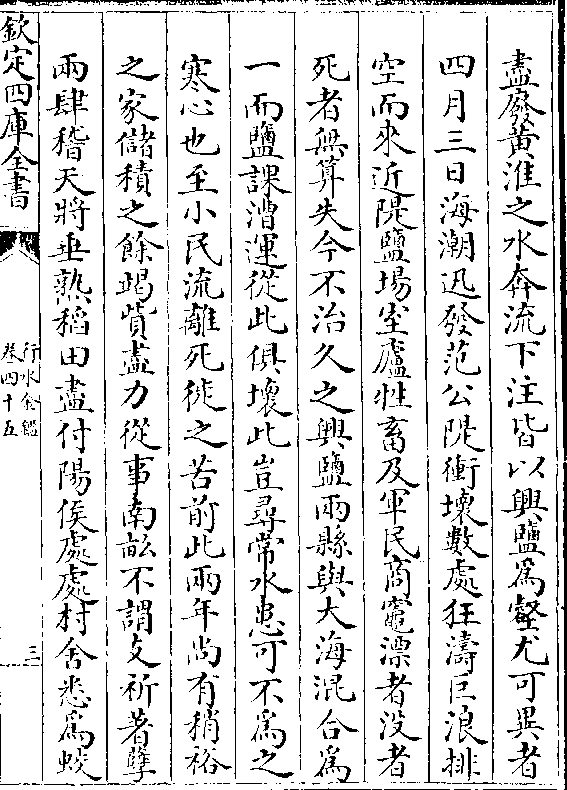 盡廢黃淮之水奔流下注皆以興鹽爲壑尤可異者
四月三日海潮迅發范公隄衝壞數處狂濤巨浪排
空而來近隄鹽場室廬牲畜及軍民商竈漂者没者
死者無算失今不治久之興鹽兩縣與大海混合爲
一而鹽課漕運從此俱壞此豈尋常水患可不爲之
寒心也至小民流離死徙之苦前此兩年尚有稍裕
之家儲積之餘竭貲盡力從事南畝不謂支祈著孽
兩肆稽天將垂熟稻田盡付陽侯處處村舍悉爲蛟
欽定四庫全書
行水金鑑
卷四十五
三